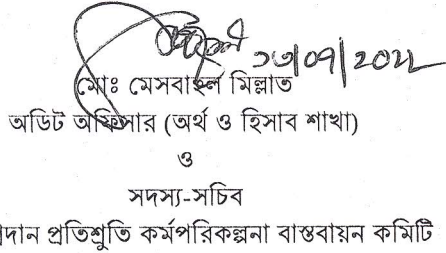 ২৬/07/2022
মোঃ মেসবাহুল মিল্লাত
অডিট অফিসার (অর্থ ও হিসাব শাখা)
ও
সদস্য-সচিব
দান প্রতিশ্রুতি কর্মপরিকল্পনা বাস্তবায়ন কমিটি